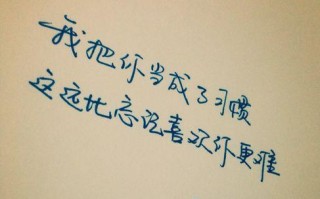 我把你当成了习惯
这远比忘说喜欢你更难